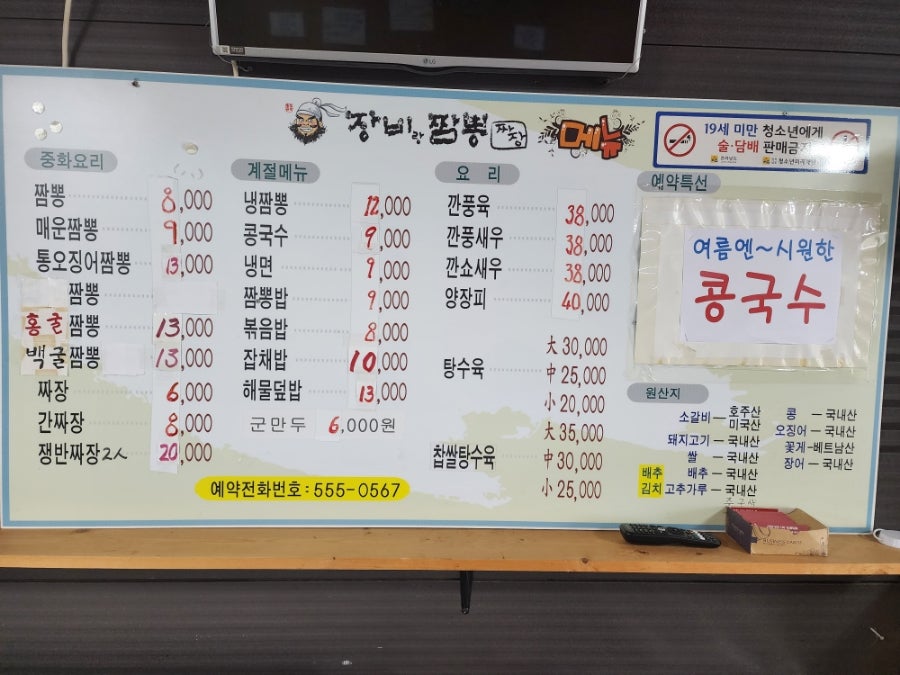 LG
장비랑짬뽕 짜장 메뉴
19세 미만 청소년에게
술·담배 판매금지
중화요리
짬뽕 8,000
매운짬뽕 9,000
통오징어짬뽕 13,000
짬뽕
홍굴짬뽕 13,000
백굴짬뽕 13,000
짜장 6,000
간짜장 8,000
쟁반짜장2人 20,000
계절메뉴
냉짬뽕 12,000
콩국수 9,000
냉면 9,000
짬뽕밥 9,000
볶음밥 8,000
잡채밥 10,000
해물덮밥 13,000
군만두 6,000원
요 리
깐풍육 38,000
깐풍새우 38,000
깐쇼새우 38,000
양장피 40,000
탕수육
大 30,000
中 25,000
小 20,000
찹쌀탕수육
大 35,000
中 30,000
小 25,000
예약특선
여름엔~시원한
콩국수
원산지
소갈비 - 호주산 미국산
돼지고기 - 국내산
쌀 - 국내산
배추김치 배추 - 국내산
고추가루 - 국내산
콩 - 국내산
오징어 - 국내산
꽃게 - 베트남산
장어 - 국내산
예약전화번호 : 555-0567